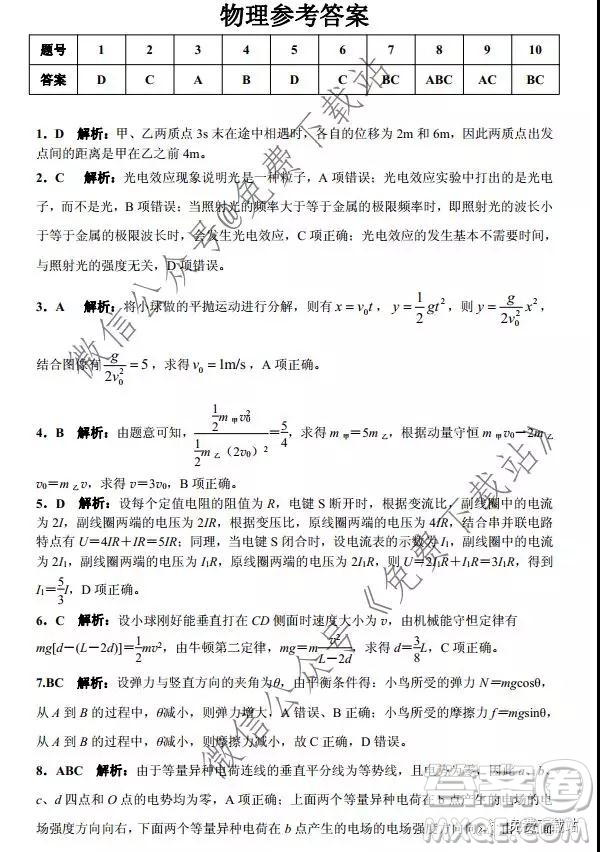 物理参考答案
题号 1 2 3 4 5 6 7 8 9 10
答案 D C A B D C BC ABC AC BC
1．D 解析：甲、乙两质点3s末在途中相遇时，各自的位移为2m和6m，因此两质点出发
点间的距离是甲在乙之前4m。
2．C 解析：光电效应现象说明光是一种粒子，A项错误；光电效应实验中打出的是光电
子，而不是光，B项错误；当照射光的频率大于等于金属的极限频率时，即照射光的波长小
于等于金属的极限波长时，会发生光电效应，C项正确；光电效应的发生基本不需要时间，
与照射光的强度无关，D项错误。
3．A 解析：将小球做的平抛运动进行分解，则有 x = v₀t， y = 1/2 gt²，则 y = g/2v₀² x²，
结合图像有 g/2v₀² = 5，求得 v₀ = 1m/s，A项正确。
4．B 解析：由题意可知，(1/2 m甲v₀²)/(1/2 m乙（2v₀）²)=5/4，求得 m甲=5m乙，根据动量守恒 m甲v₀－2m乙
v₀=m乙v，求得 v=3v₀，B项正确。
5．D 解析：设每个定值电阻的阻值为R，电键S断开时，根据变流比，副线圈中的电流
为2I，副线圈两端的电压为2IR，根据变压比，原线圈两端的电压为4IR，结合串并联电路
特点有U＝4IR＋IR＝5IR；同理，当电键S闭合时，设电流表的示数为I₁，副线圈中的电流
为2I₁，副线圈两端的电压为I₁R，原线圈两端的电压为2I₁R，则U＝2I₁R＋I₁R＝3I₁R，得到
I₁＝5/3 I，D项正确。
6．C 解析：设小球刚好能垂直打在CD侧面时速度大小为v，由机械能守恒定律有
mg[d－(L－2d)]＝1/2 mv²，由牛顿第二定律，mg＝m v²/(L－2d)，求得 d＝3/8 L，C项正确。
7.BC 解析：设弹力与竖直方向的夹角为θ，由平衡条件得：小鸟所受的弹力N＝mgcosθ，
从A到B的过程中，θ减小，则弹力增大，A错误、B正确；小鸟所受的摩擦力f＝mgsinθ，
从A到B的过程中，θ减小，则摩擦力减小，故C正确，D错误。
8．ABC 解析：由于等量异种电荷连线的垂直平分线为等势线，且电势为零，因此a、b、
c、d四点和O点的电势均为零，A项正确；上面两个等量异种电荷在b点产生的电场的电
场强度方向向右，下面两个等量异种电荷在b点产生的电场的电场强度方向向
微信公众号@免费下载站
微信公众号《免费下载站》